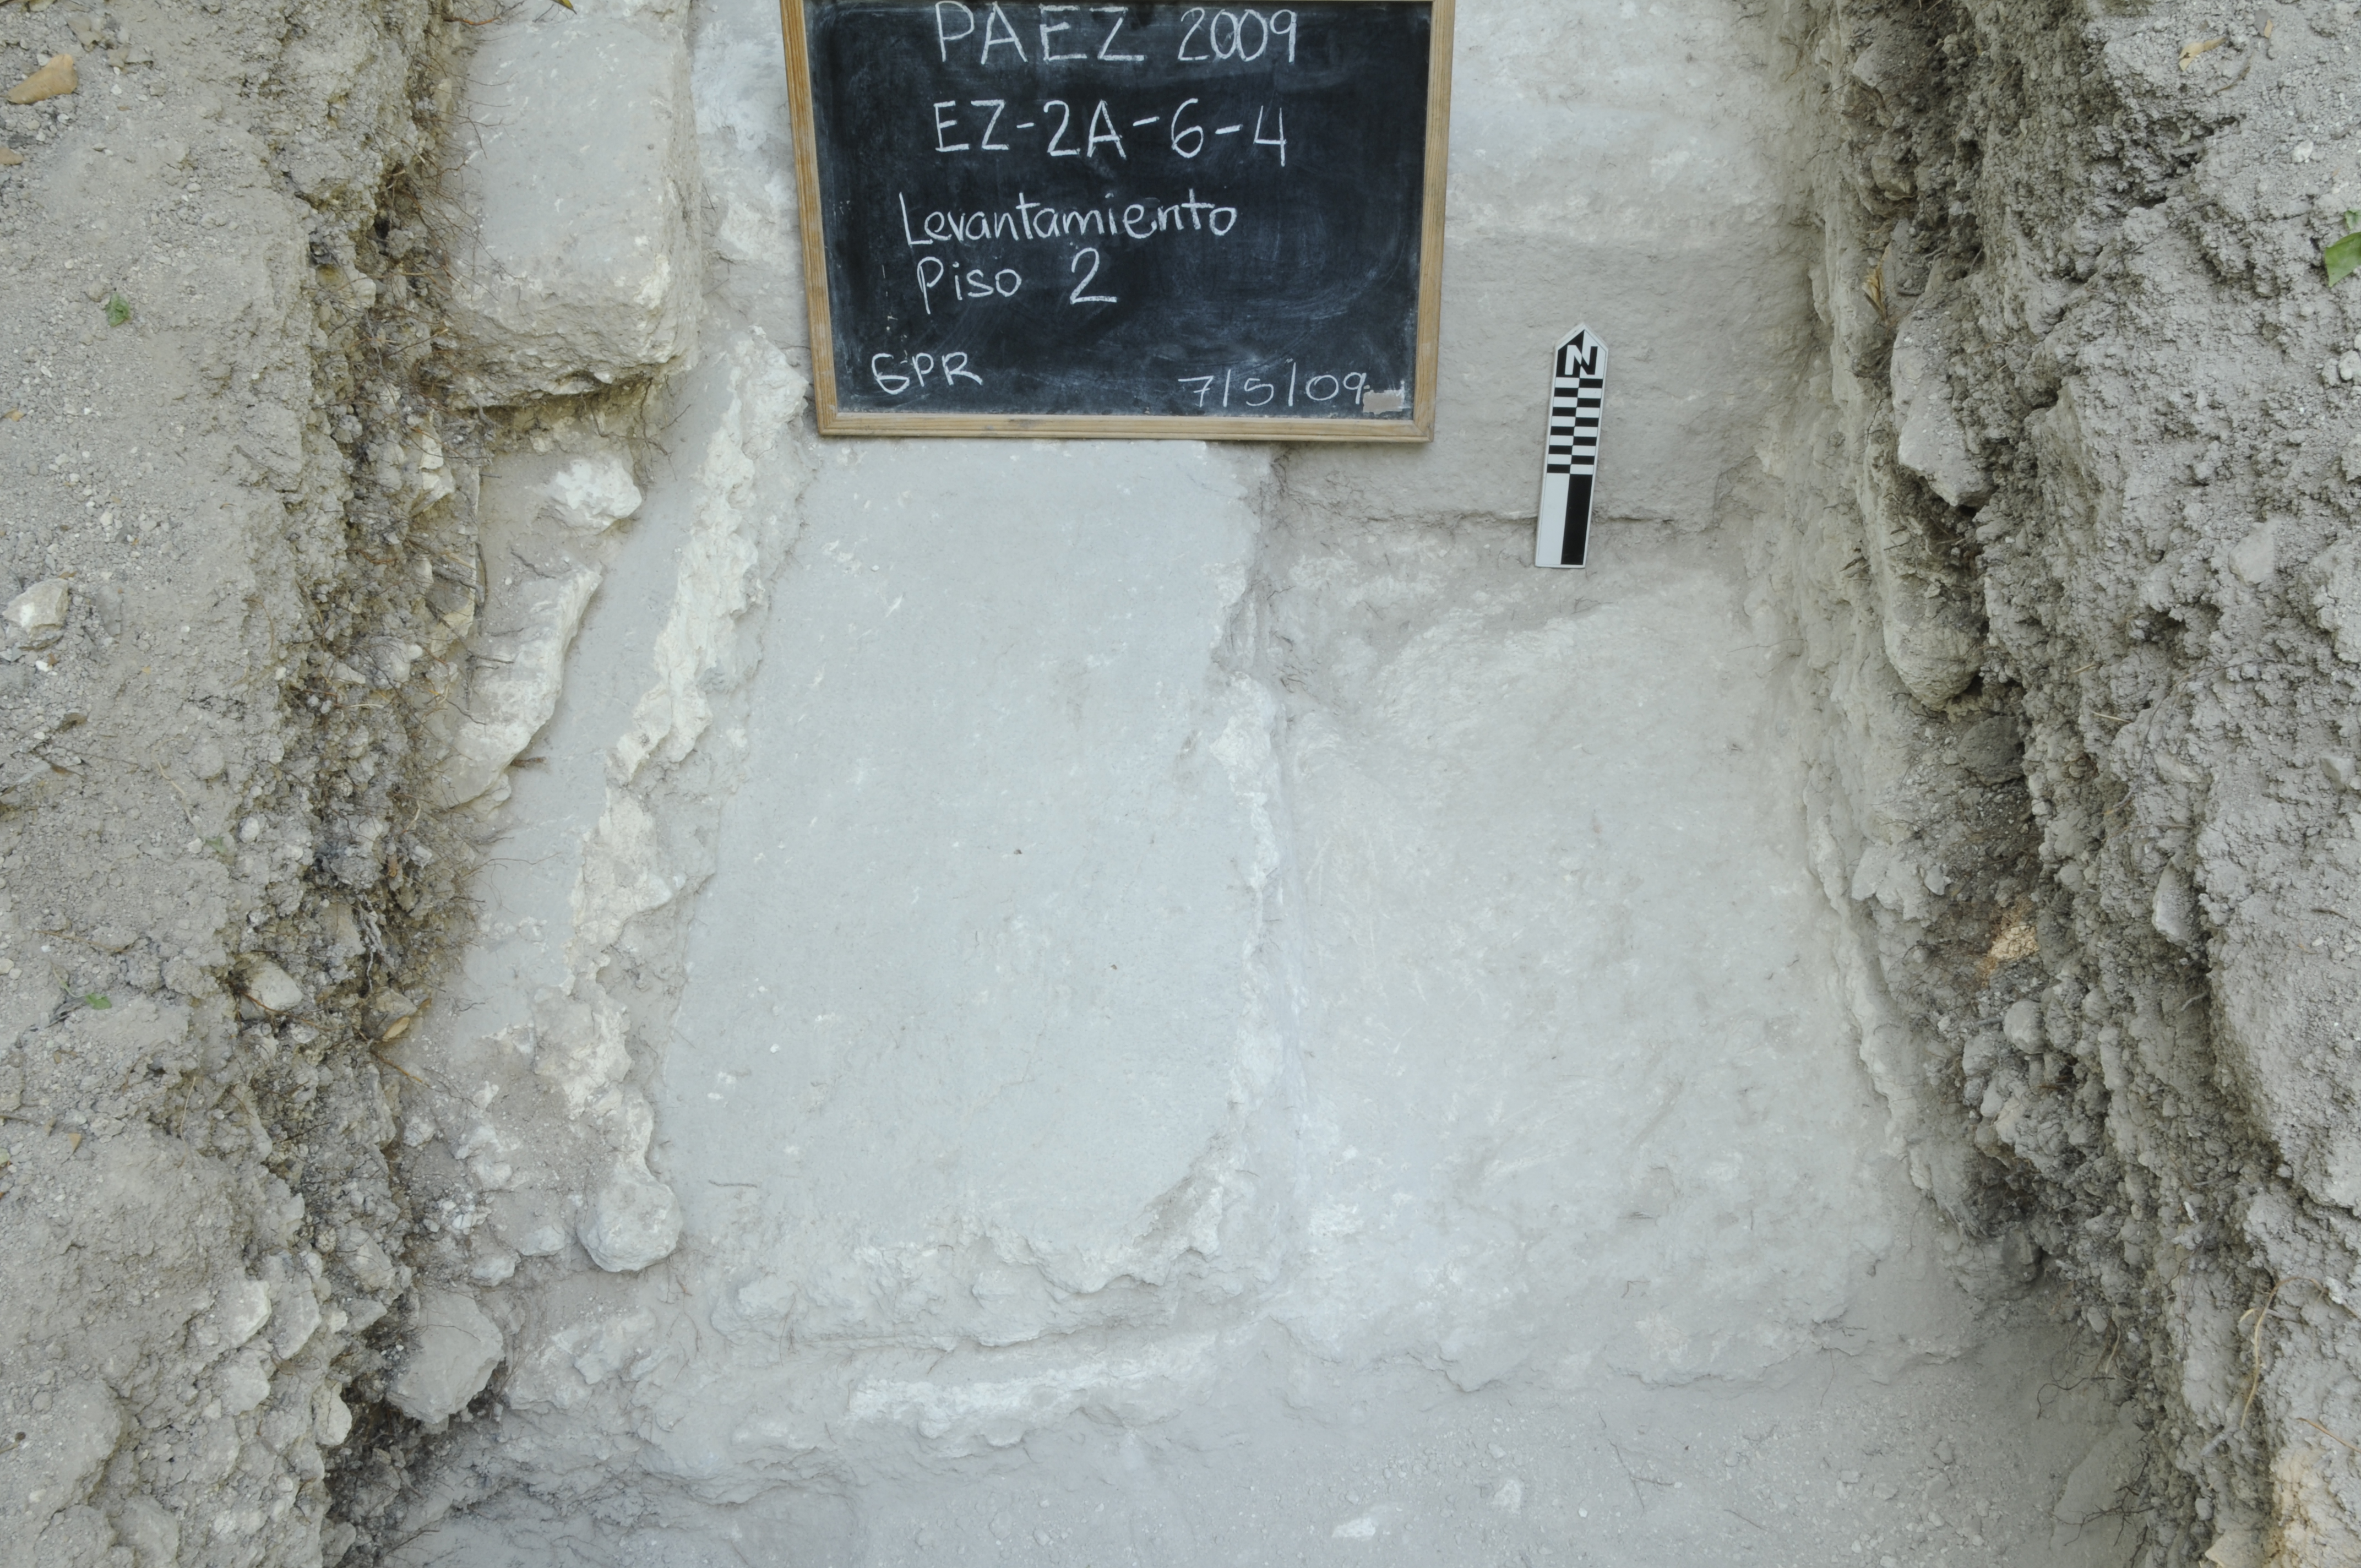 PAEZ 2009
EZ-2A-6-4
Levantamiento
Piso 2
GPR
7/5/09
N